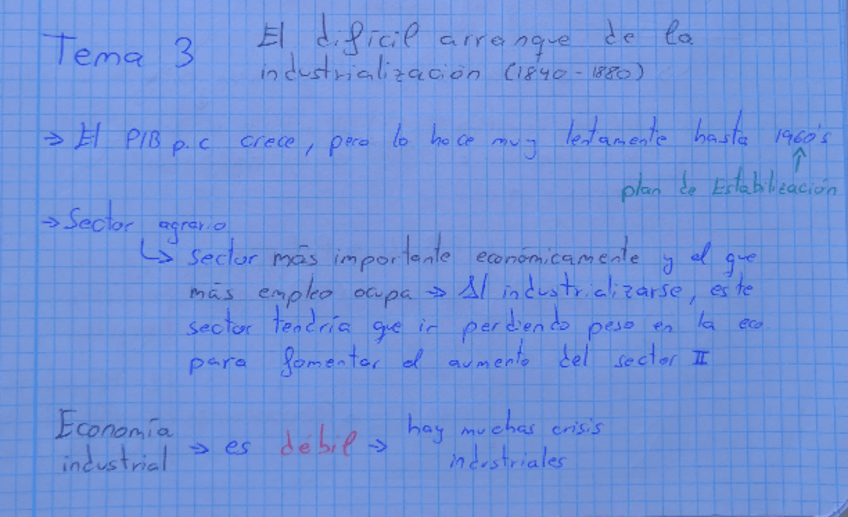 Tema 3
El dificil arranque de la
industrialización (1840-1880)
→ El PIB p.c crece, pero lo hace muy lentamente hasta 1960's
↑
plan de Estabilización
→ Sector agrario
↳ sector más importante económicamente y el que
más empleo ocupa → Al industrializarse, este
sector tendría que ir perdiendo peso en la eco.
para fomentar el aumento del sector II
Economía
industrial → es débil → hay muchas crisis
industriales